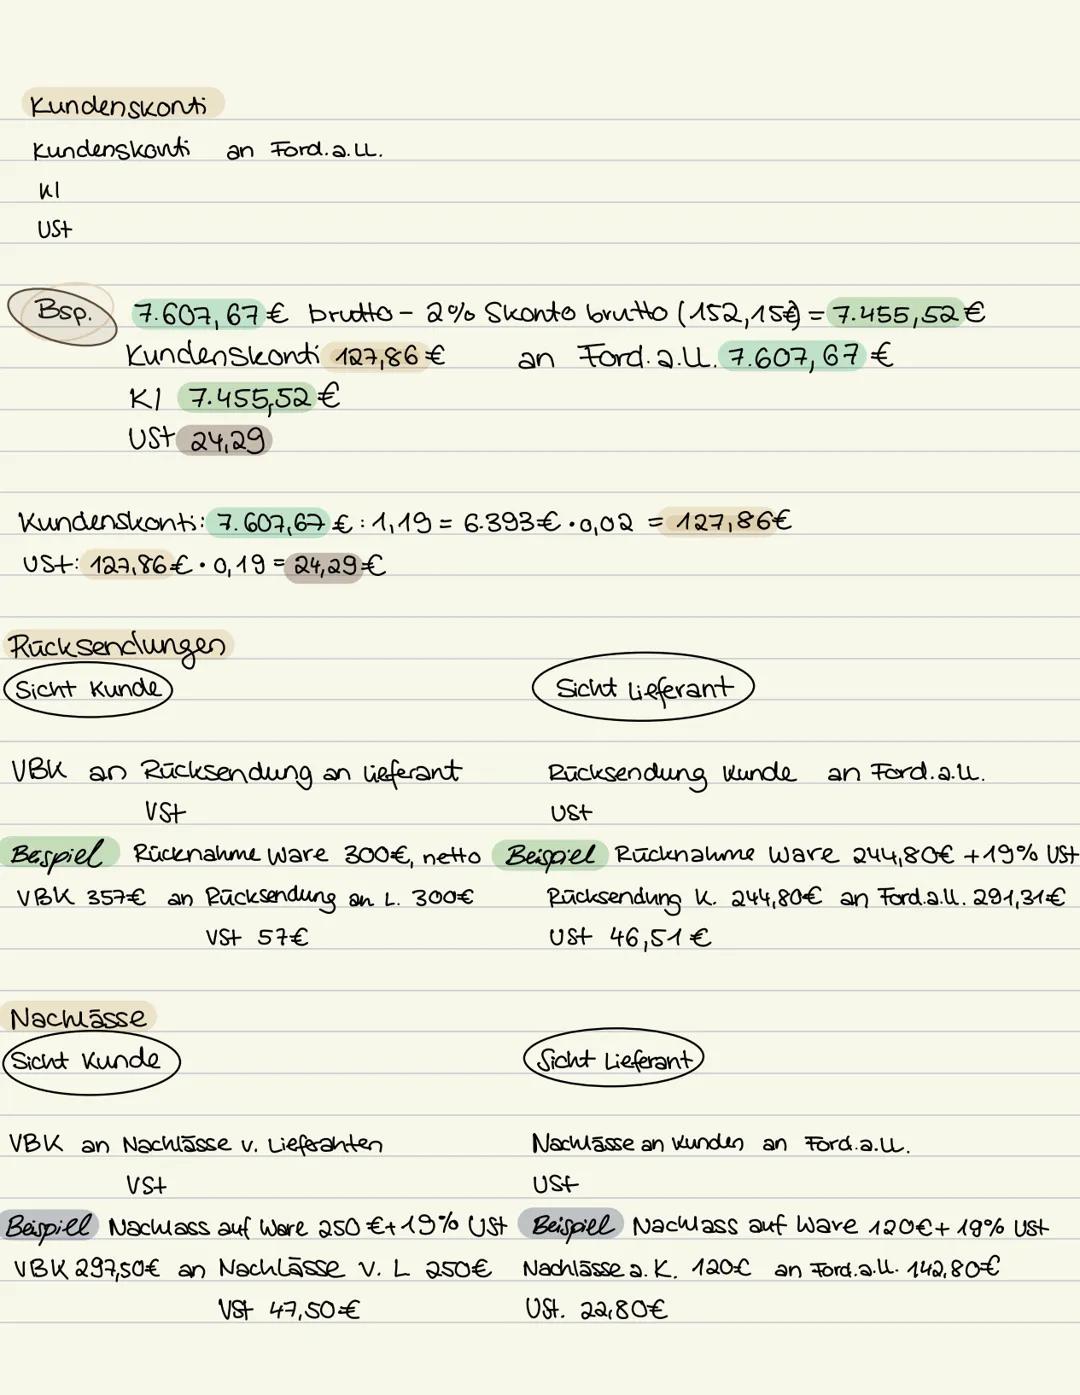 Kundenskonti
Kundenskonti an Ford.a.LL.
KI
USt
Bsp. 7.607,67€ brutto - 2% Skonto brutto (152,15€) = 7.455,52€
Kundenskonti 127,86€ an Ford.a.LL. 7.607,67€
KI 7.455,52€
USt 24,29
Kundenskonti: 7.607,67€ : 1,19 = 6.393€ · 0,02 = 127,86€
USt: 127,86€ · 0,19 = 24,29€
Rücksendungen
Sicht Kunde Sicht Lieferant
VBK an Rücksendung an Lieferant Rücksendung Kunde an Ford.a.LL.
VSt USt
Beispiel Rücknahme Ware 300€, netto Beispiel Rücknahme Ware 244,80€ +19% USt
VBK 357€ an Rücksendung an L. 300€ Rücksendung K. 244,80€ an Ford.a.LL. 291,31€
VSt 57€ USt 46,51€
Nachlässe
Sicht Kunde Sicht Lieferant
VBK an Nachlässe v. Lieferanten Nachlässe an Kunden an Ford.a.LL.
VSt USt
Beispiel Nachlass auf Ware 250€+19% USt Beispiel Nachlass auf Ware 120€+ 19% USt
VBK 297,50€ an Nachlässe v. L 250€ Nachlässe a. K. 120€ an Ford.a.LL. 142,80€
VSt 47,50€ USt. 22,80€